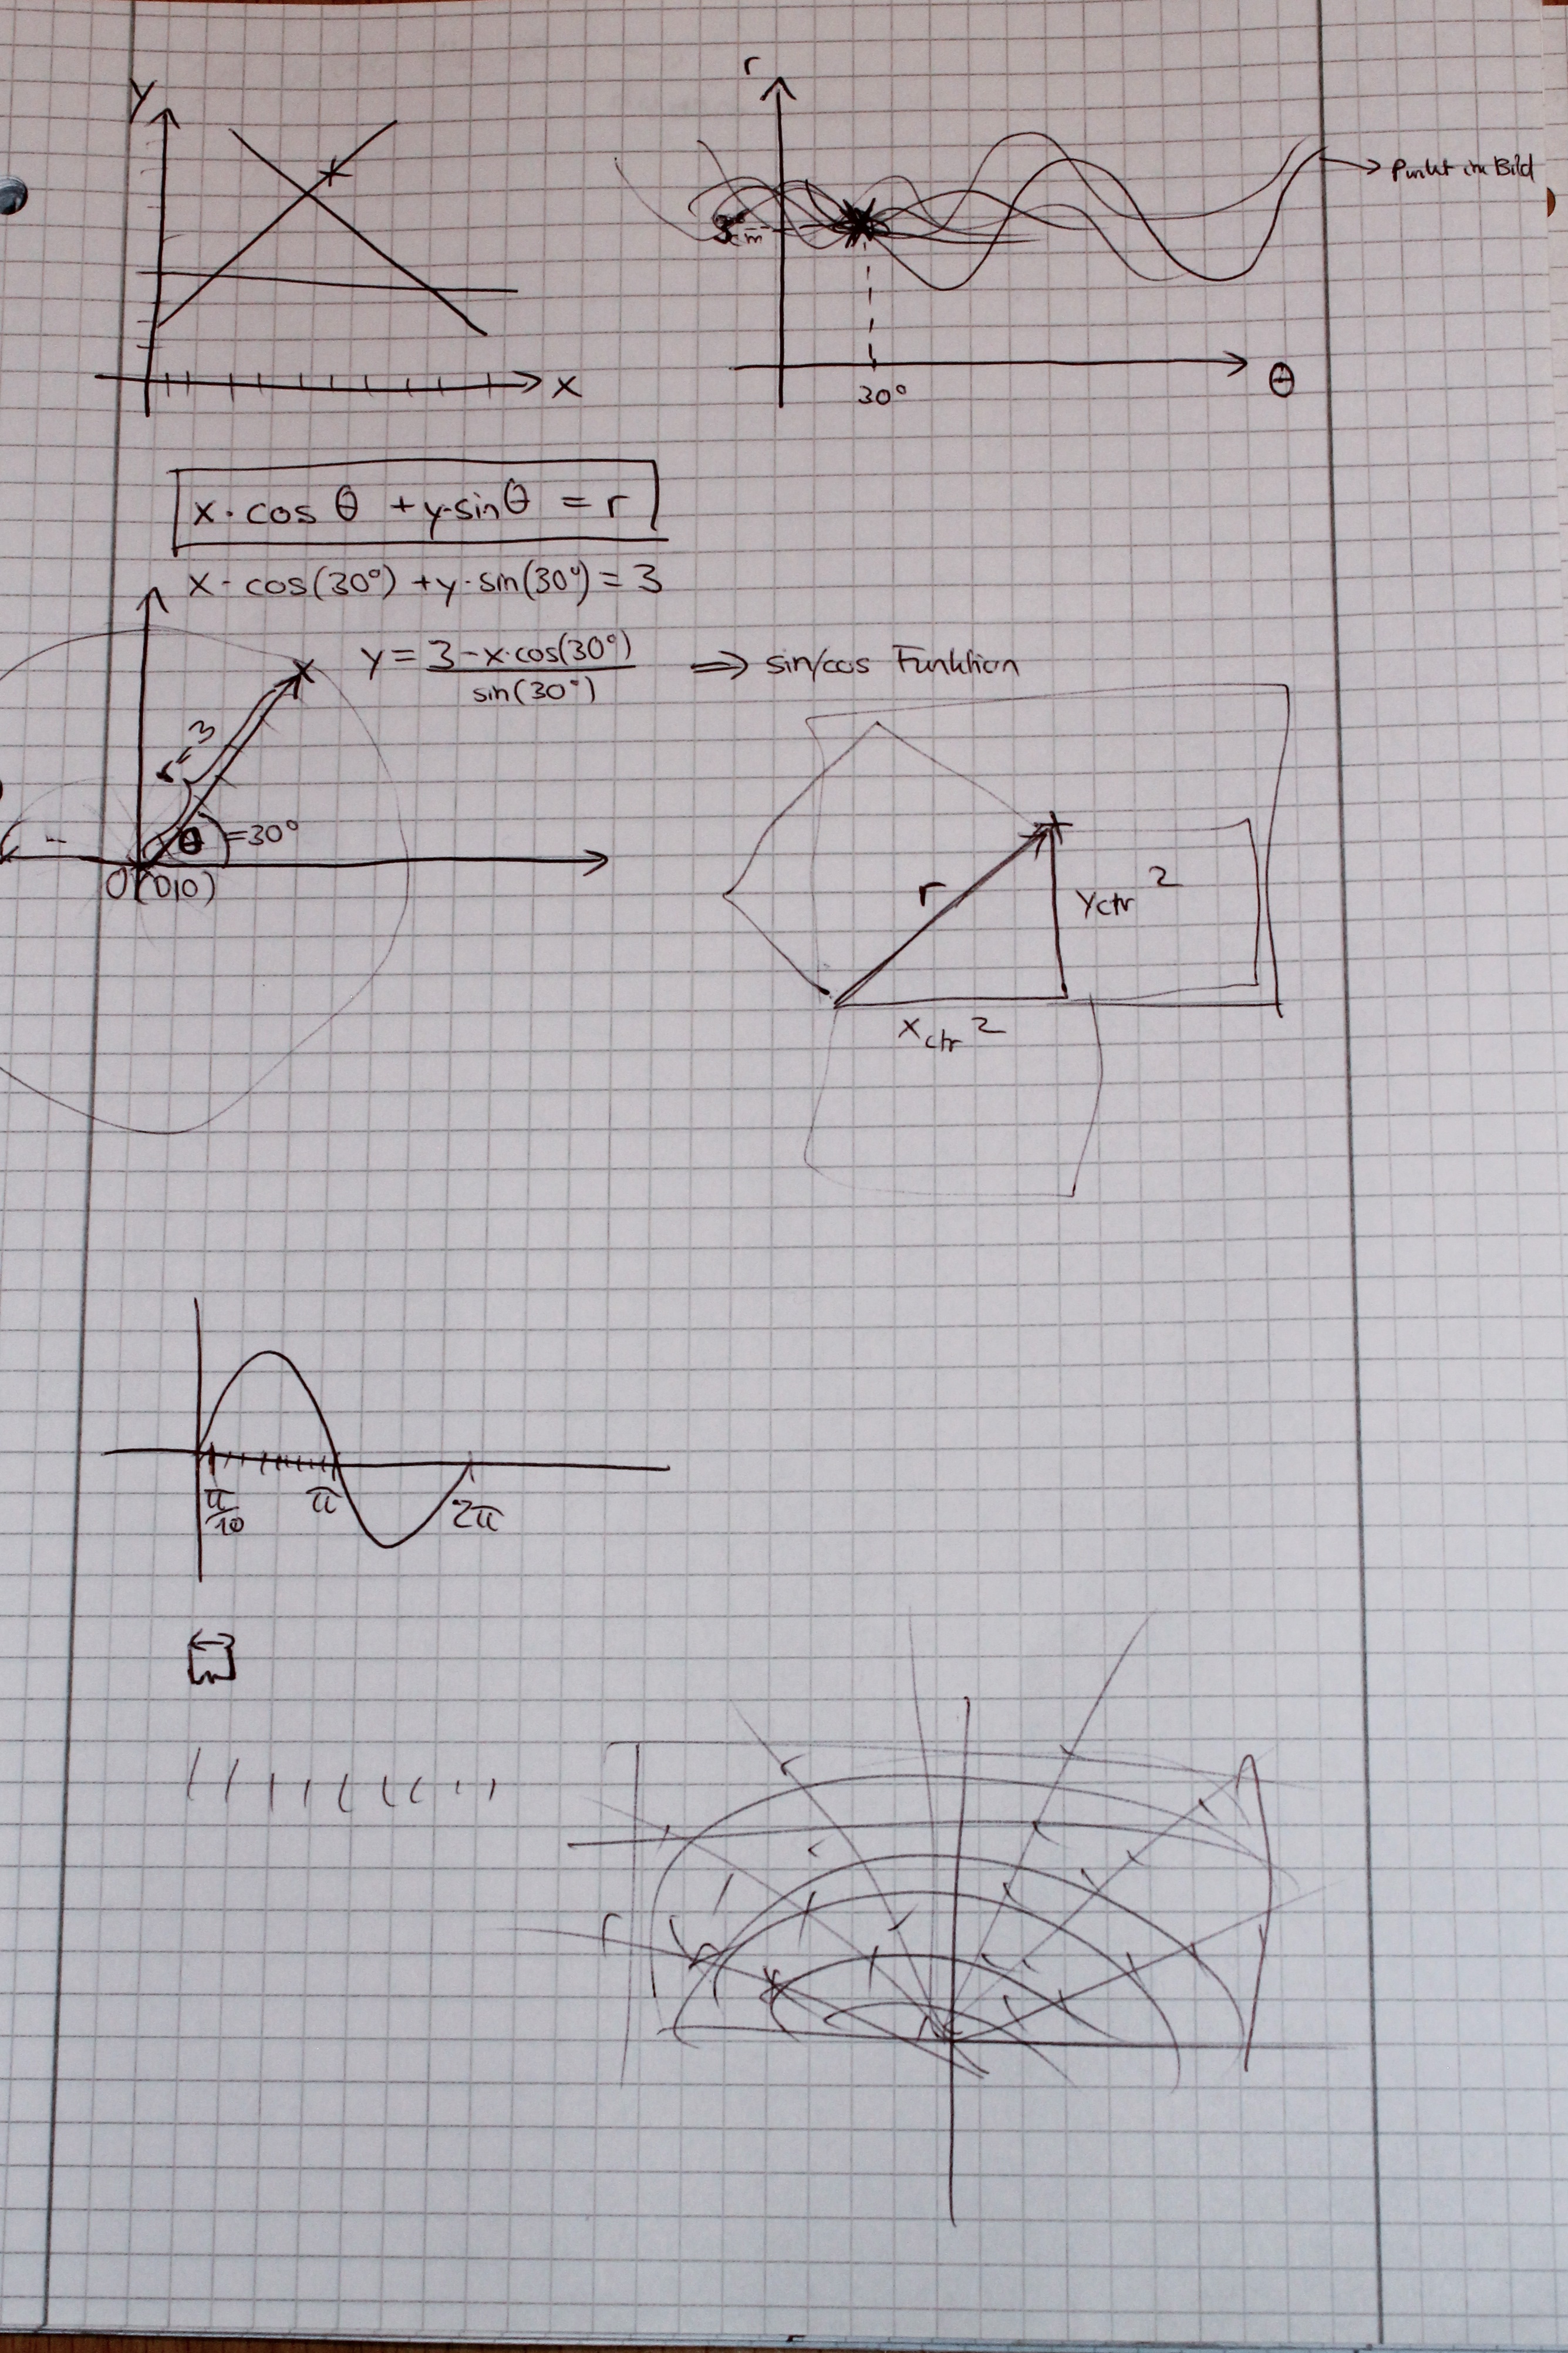 y
x
r
3cm
30°
θ
Punkt im Bild
x · cos θ + y·sinθ = r
x · cos(30°) + y · sin(30°) = 3
y = 3-x·cos(30°) / sin(30°) ⇒ sin/cos Funktion
r=3
θ =30°
O(0|0)
r
yctr 2
xctr 2
π/10
π
2π
r